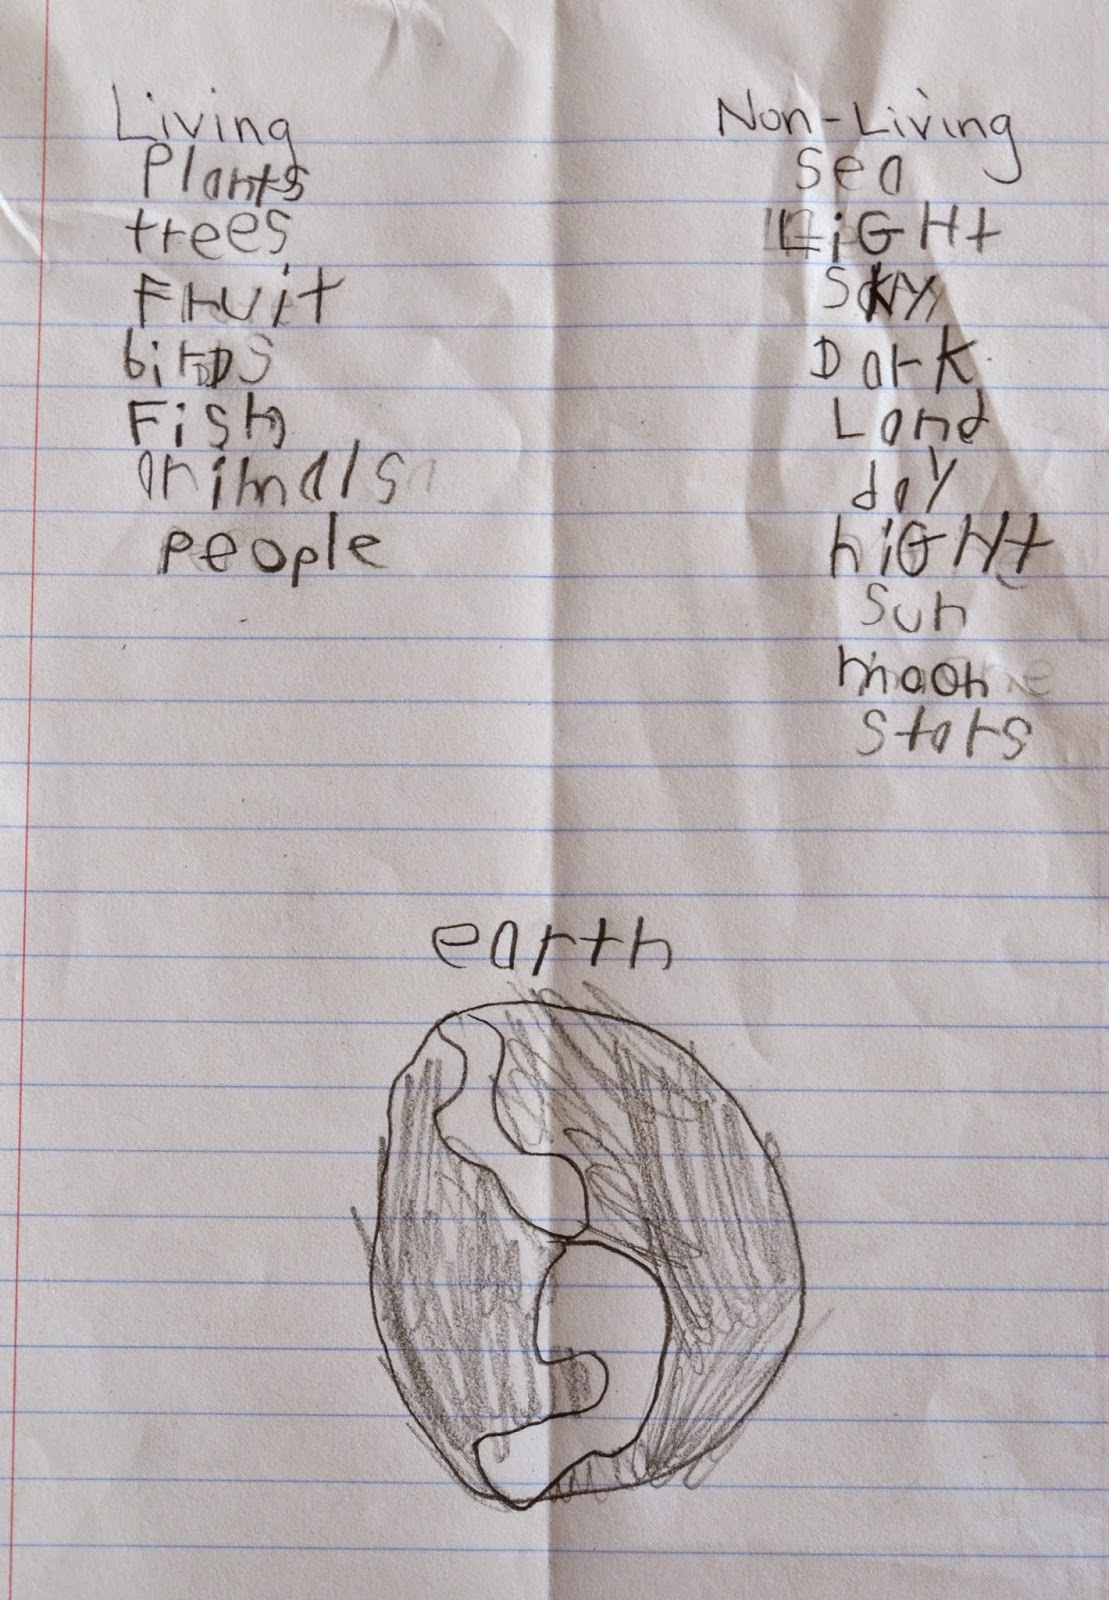 Living
Plants
trees
Fruit
birDs
Fish
animals
people
Non-Living
Sea
LiGHt
SKY
Dark
Land
day
niGHt
Sun
moon
Stars
earth